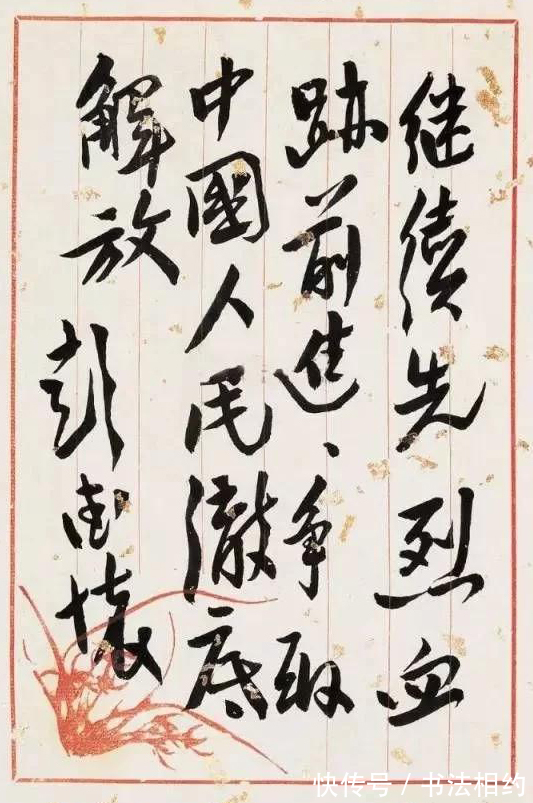 继续先烈血
跡前進、争取
中國人民澈底
解放 彭德懷
快传号 / 书法相约